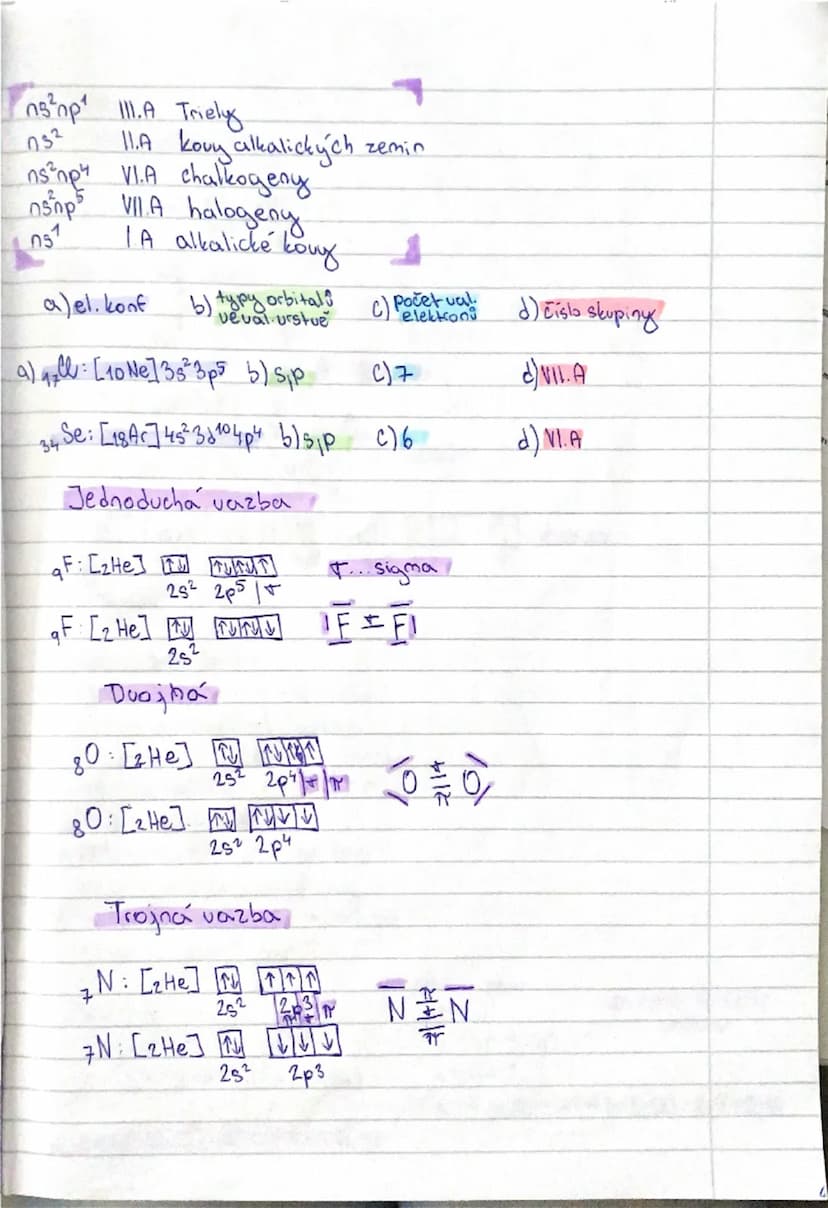 ns²np¹ III.A Triely
ns² II.A kovy alkalických zemin
ns²np⁴ VI.A chalkogeny
ns²np⁵ VII.A halogeny
ns¹ I A alkalické kovy
a) el. konf b) typy orbitalů ve val. vrstvě c) počet val. elektronů d) číslo skupiny
a) ₁₇Cl: [₁₀Ne] 3s²3p⁵ b) s,p c) 7 d) VII.A
₃₄Se: [₁₈Ar] 4s²3d¹⁰4p⁴ b) s,p c) 6 d) VI.A
Jednoduchá vazba
₉F: [₂He] ↑↓ ↑↓ ↑↓ ↑ σ...sigma
2s² 2p⁵ | σ
₉F: [₂He] ↑↓ ↑↓ ↑↓ ↓ |F σ F|
2s²
Dvojná
₈O: [₂He] ↑↓ ↑↓ ↑ ↑ O σ π O
2s² 2p⁴ | σ | π
₈O: [₂He] ↑↓ ↑↓ ↓ ↓
2s² 2p⁴
Trojná vazba
₇N: [₂He] ↑↓ ↑ ↑ ↑ N π σ π N
2s² 2p³ π
π σ
₇N: [₂He] ↑↓ ↓ ↓ ↓
2s² 2p³